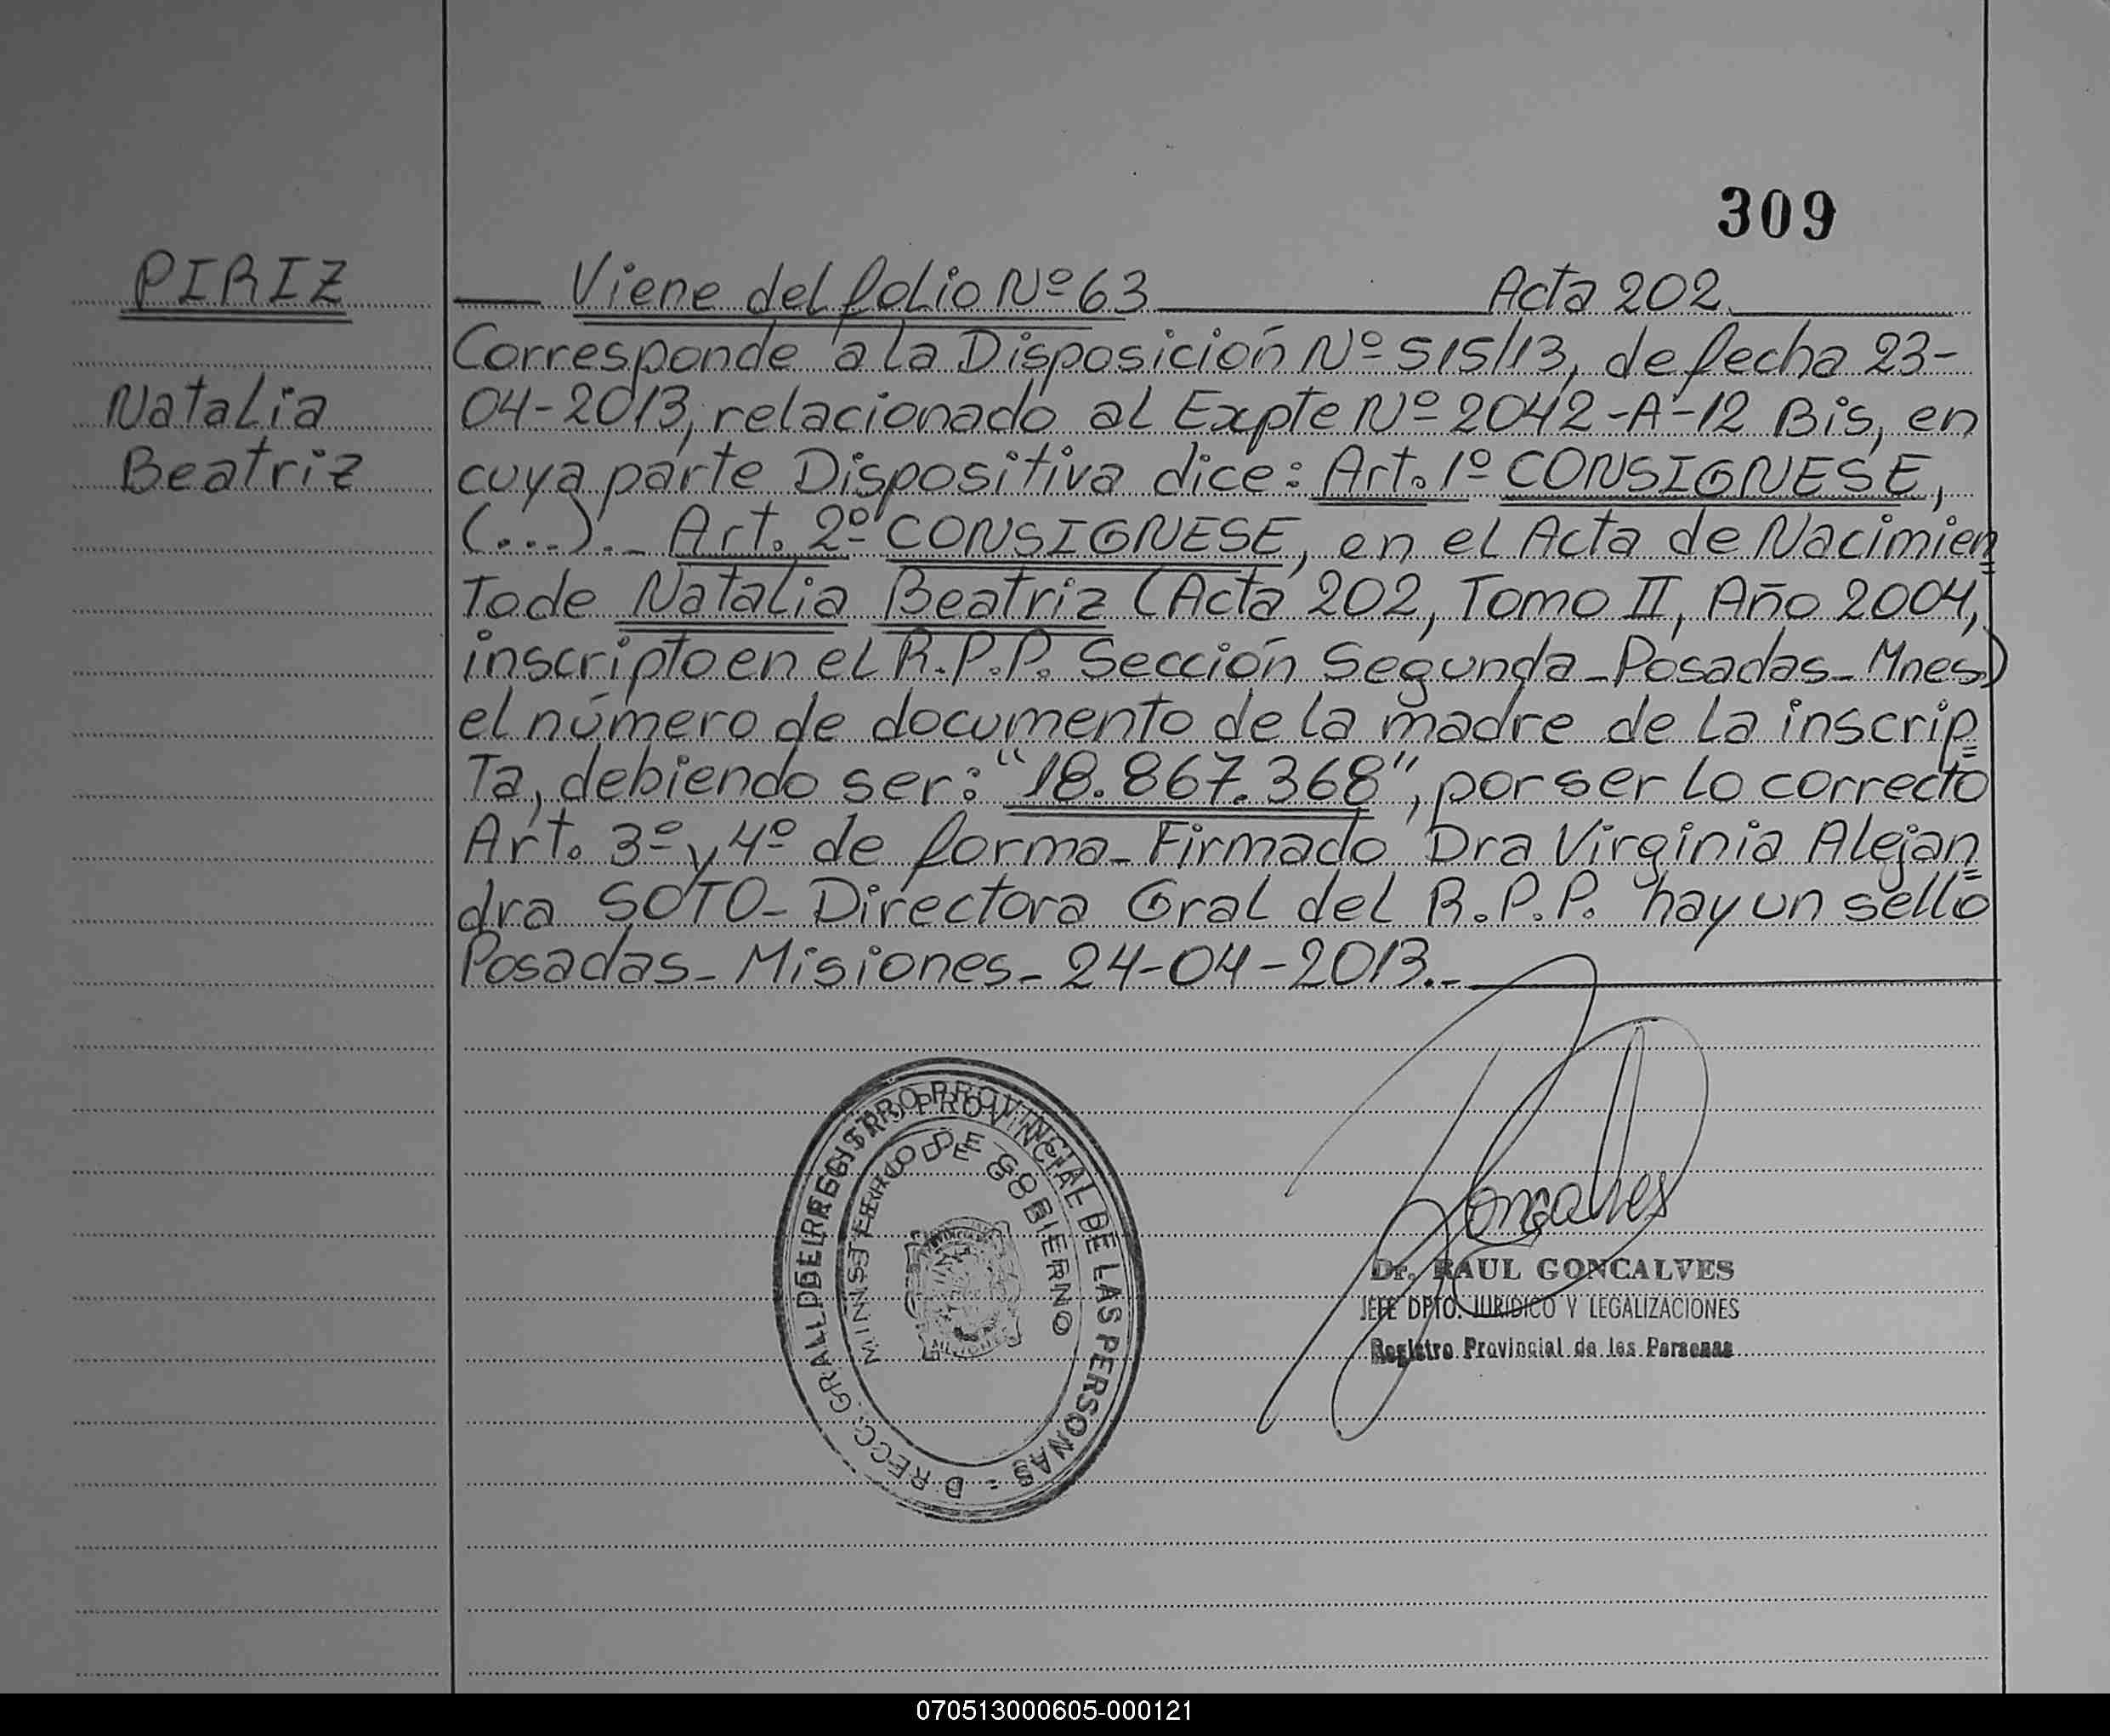 309
PIRIZ
Natalia
Beatriz
Viene del folio Nº 63 Acta 202
Corresponde a la Disposición Nº 515/13, de fecha 23-
04-2013, relacionado al Expte Nº 2042-A-12 Bis, en
cuya parte Dispositiva dice: Art. 1º CONSIGNESE,
(...)._ Art. 2º CONSIGNESE, en el Acta de Nacimien
to de Natalia Beatriz (Acta 202, Tomo II, Año 2004,
inscripto en el R.P.P. Sección Segunda-Posadas-Mnes)
el número de documento de la madre de la inscrip
ta, debiendo ser: "18.867.368", por ser lo correcto
Art. 3º y 4º de forma- Firmado Dra Virginia Alejan
dra SOTO- Directora Gral del R.P.P. hay un sello
Posadas- Misiones- 24-04-2013.-
DIRECC. GRAL DEL REGISTRO PROVINCIAL DE LAS PERSONAS -
MINISTERIO DE GOBIERNO
Goncalves
Dr. RAUL GONCALVES
JEFE DPTO. JURIDICO Y LEGALIZACIONES
Registro Provincial de las Personas
070513000605-000121